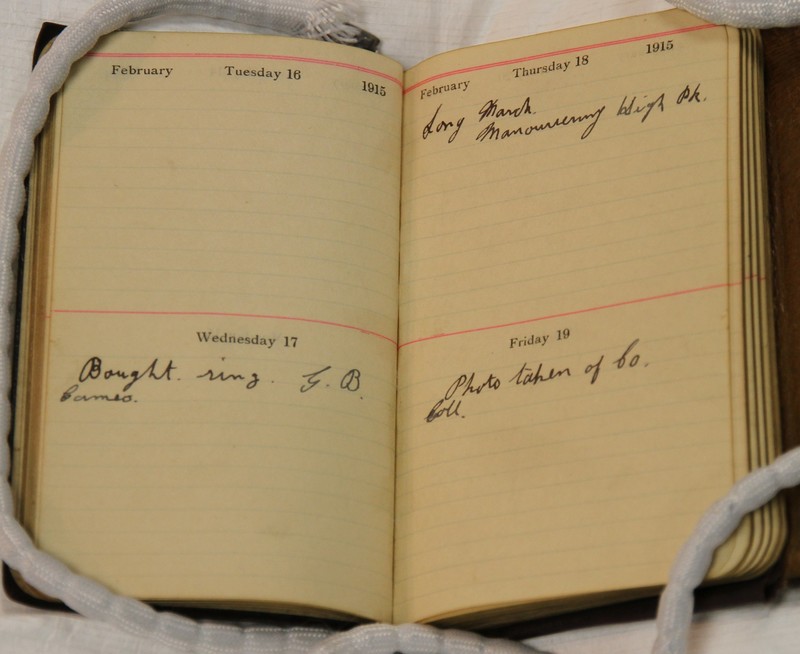 February Tuesday 16 1915
Wednesday 17
Bought. ring. G. B.
Cameo.
February Thursday 18 1915
Long March.
Manouvering High Pk.
Friday 19
Photo taken of Co.
Coll.